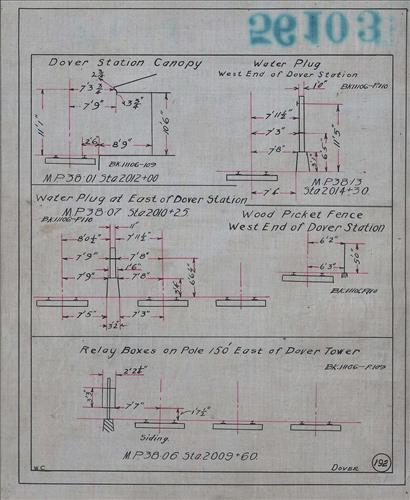 56103
Dover Station Canopy
2 3/4"
7'3 3/4"
3 3/4"
7'9"
11'1"
10'6"
2'6"
8'9"
BK1106-109
M.P.38.01 Sta 2012+00
Water Plug
West End of Dover Station
1'0"
BK1106-P110
7'11 1/2"
7'3"
7'8"
6'5"
11'5"
3'1"
7'6"
M.P.38.13
Sta 2014+30
Water Plug at East of Dover Station
M.P.38.07 Sta 2010+25
BK1106-P110
11"
8'0 1/2"
7'11 1/2"
7'9"
7'8"
1'6"
7'9"
7'8"
6'6 1/2"
2'6"
7'5"
7'3"
3'2"
Wood Picket Fence
West End of Dover Station
6'2"
5'0"
6'3"
BK1106P110
Relay Boxes on Pole 150' East of Dover Tower
BK1106-P109
2'2 1/2"
3'3"
7'7"
1'7 1/2"
Siding.
M.P.38.06 Sta 2009+60
W.C.
Dover
192